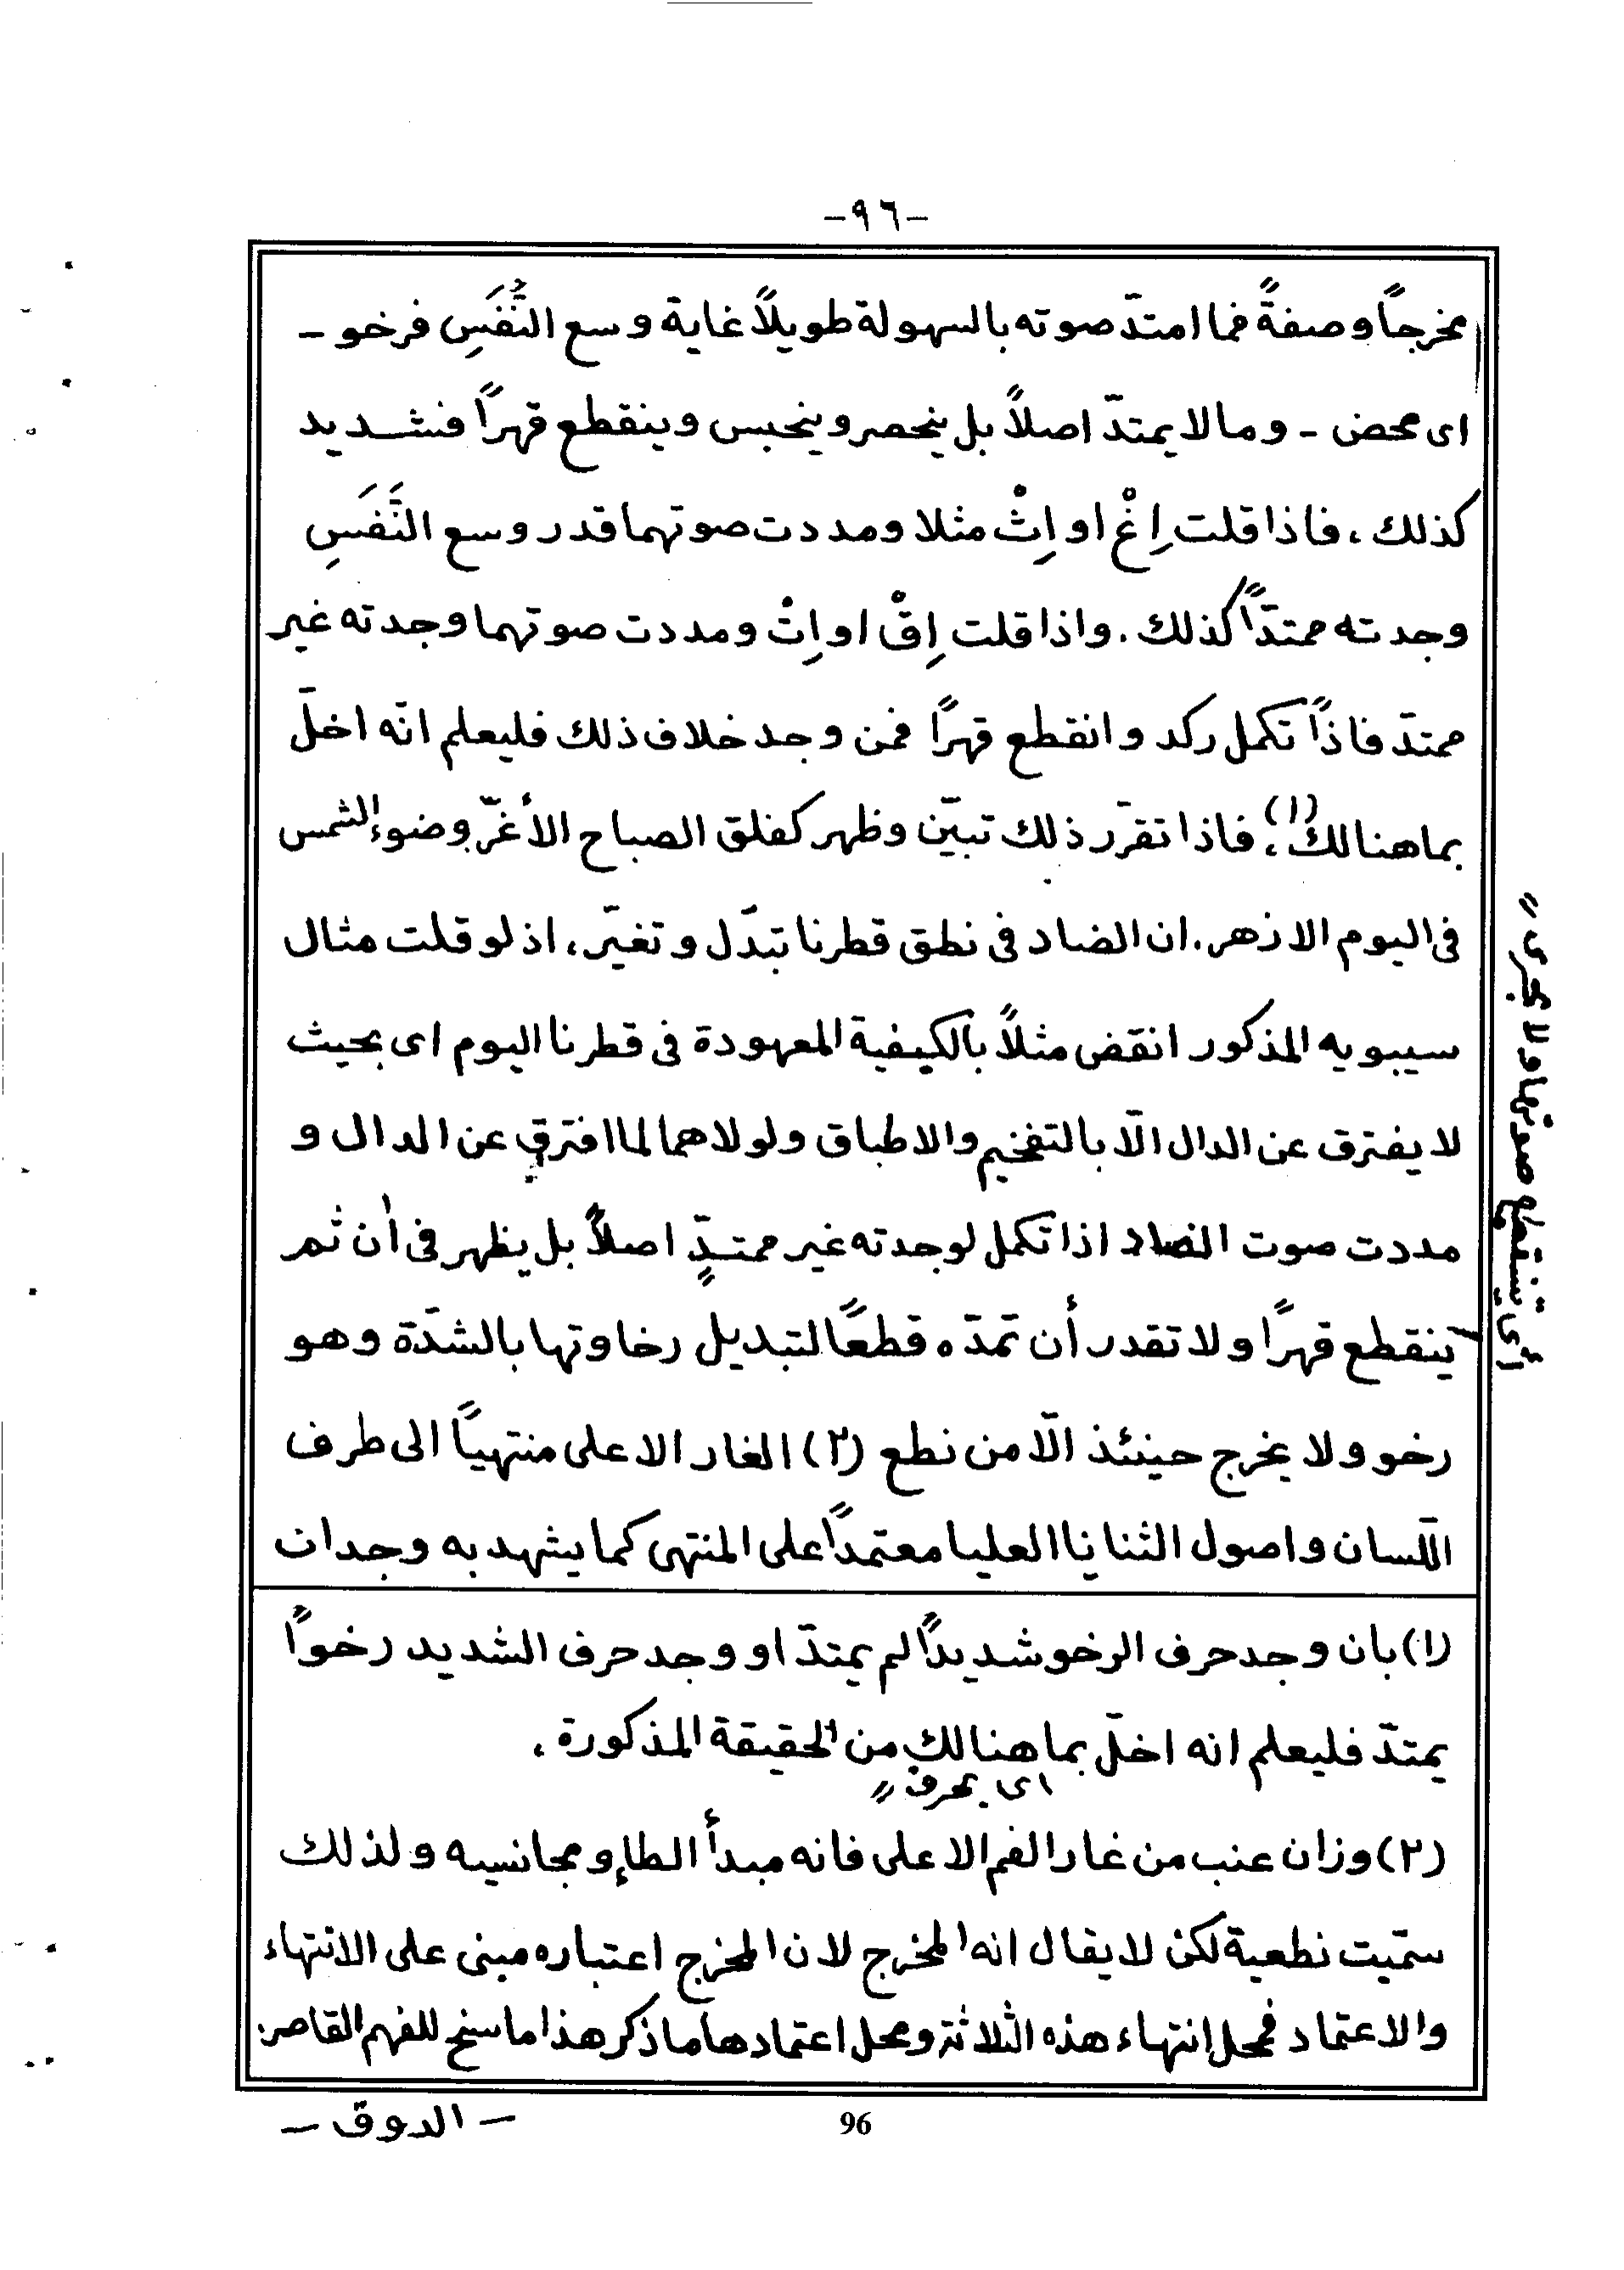 -٩٦-
مخرجاً وصفةً فما امتدّ صوته بالسهولة طويلاً غاية وسع النَّفَسِ فرخو -
اى محض - وما لا يمتدّ اصلاً بل ينحصر وينحبس وينقطع قهراً فشديد
كذلك ، فاذا قلت اِغْ او اِثْ مثلا ومددت صوتهما قدر وسع النَّفَسِ
وجدته ممتدّاً كذلك . واذا قلت اِقْ او اِتْ ومددت صوتهما وجدته غير
ممتدّ فاذاً تكمل ركد وانقطع قهراً فمن وجد خلاف ذلك فليعلم انّه اخلّ
بما هنالك (١) ، فاذا تقرّر ذلك تبيّن وظهر كفلق الصباح الأغرّ وضوء الشمس
فى اليوم الازهر . ان الضاد فى نطق قطرنا تبدّل وتغيّر ، اذ لو قلت مثال
سيبويه المذكور انقض مثلاً بالكيفية المعهودة فى قطرنا اليوم اى بحيث
لا يفترق عن الدال الّا بالتفخيم والاطباق ولولاهما لما افترق عن الدال و
مددت صوت الضاد اذا تكمل لوجدته غير ممتدٍّ اصلاً بل يظهر فى أن ثم
ينقطع قهراً ولا تقدر أن تمدّه قطعًا لتبديل رخاوتها بالشدّة وهو
رخو ولا يخرج حينئذ الّا من نطع (٢) الغار الاعلى منتهياً الى طرف
اللّسان واصول الثنايا العليا معتمداً على المنتهى كما يشهد به وجدان
أى ينقطع صوتها ولا يجرى
(١) بان وجد حرف الرخو شديداً لم يمتدّ او وجد حرف الشديد رخواً
يمتدّ فليعلم انه اخلّ بما هنالك من الحقيقة المذكورة ،
اى بحرف
(٢) وزان عنب من غار الفم الاعلى فانه مبدأ الطاء ومجانسيه ولذلك
سمّيت نطعية لكن لا يقال انه المخرج لان المخرج اعتباره مبنى على الانتهاء
والاعتماد فمحل إنتهاء هذه الثلاثة ومحل اعتمادها ما ذكر هذا ما سنح للفهم القاصر .
- الدوق -
96